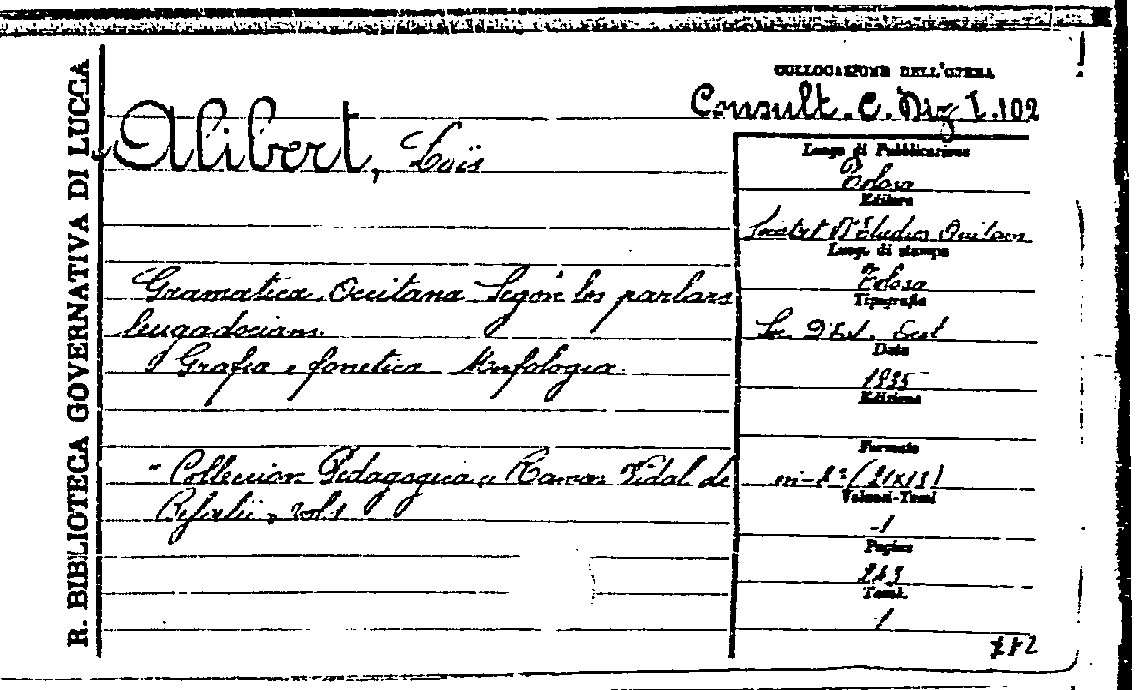 R. BIBLIOTECA GOVERNATIVA DI LUCCA
COLLOCAZIONE DELL'OPERA
Consult. C. Diz I.102
Alibert, Loïs
Luogo di Pubblicazione
Tolosa
Editore
Societat D'Estudis Occitans
Luogo di stampa
Tolosa
Tipografia
Soc. D'Est. Occit
Data
1935
Edizione
Formato
in-8° (21x13)
Volumi-Tomi
1
Pagine
243
Tomi.
1
Gramatica Occitana Segon los parlars
lengadocians.
Grafia e fonetica Morfologia.
"Colleccion Pedagogica Ramon Vidal de
vol. 1